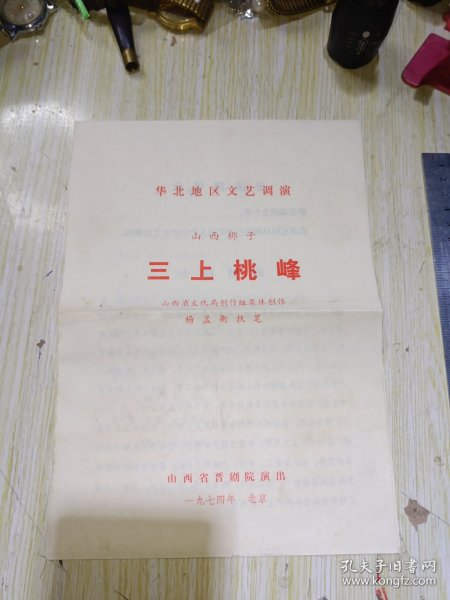 华北地区文艺调演
山西梆子
三上桃峰
山西省文化局创作组集体创作
杨孟衡执笔
山西省晋剧院演出
一九七四年 北京
孔夫子旧书网
www.kongfz.com